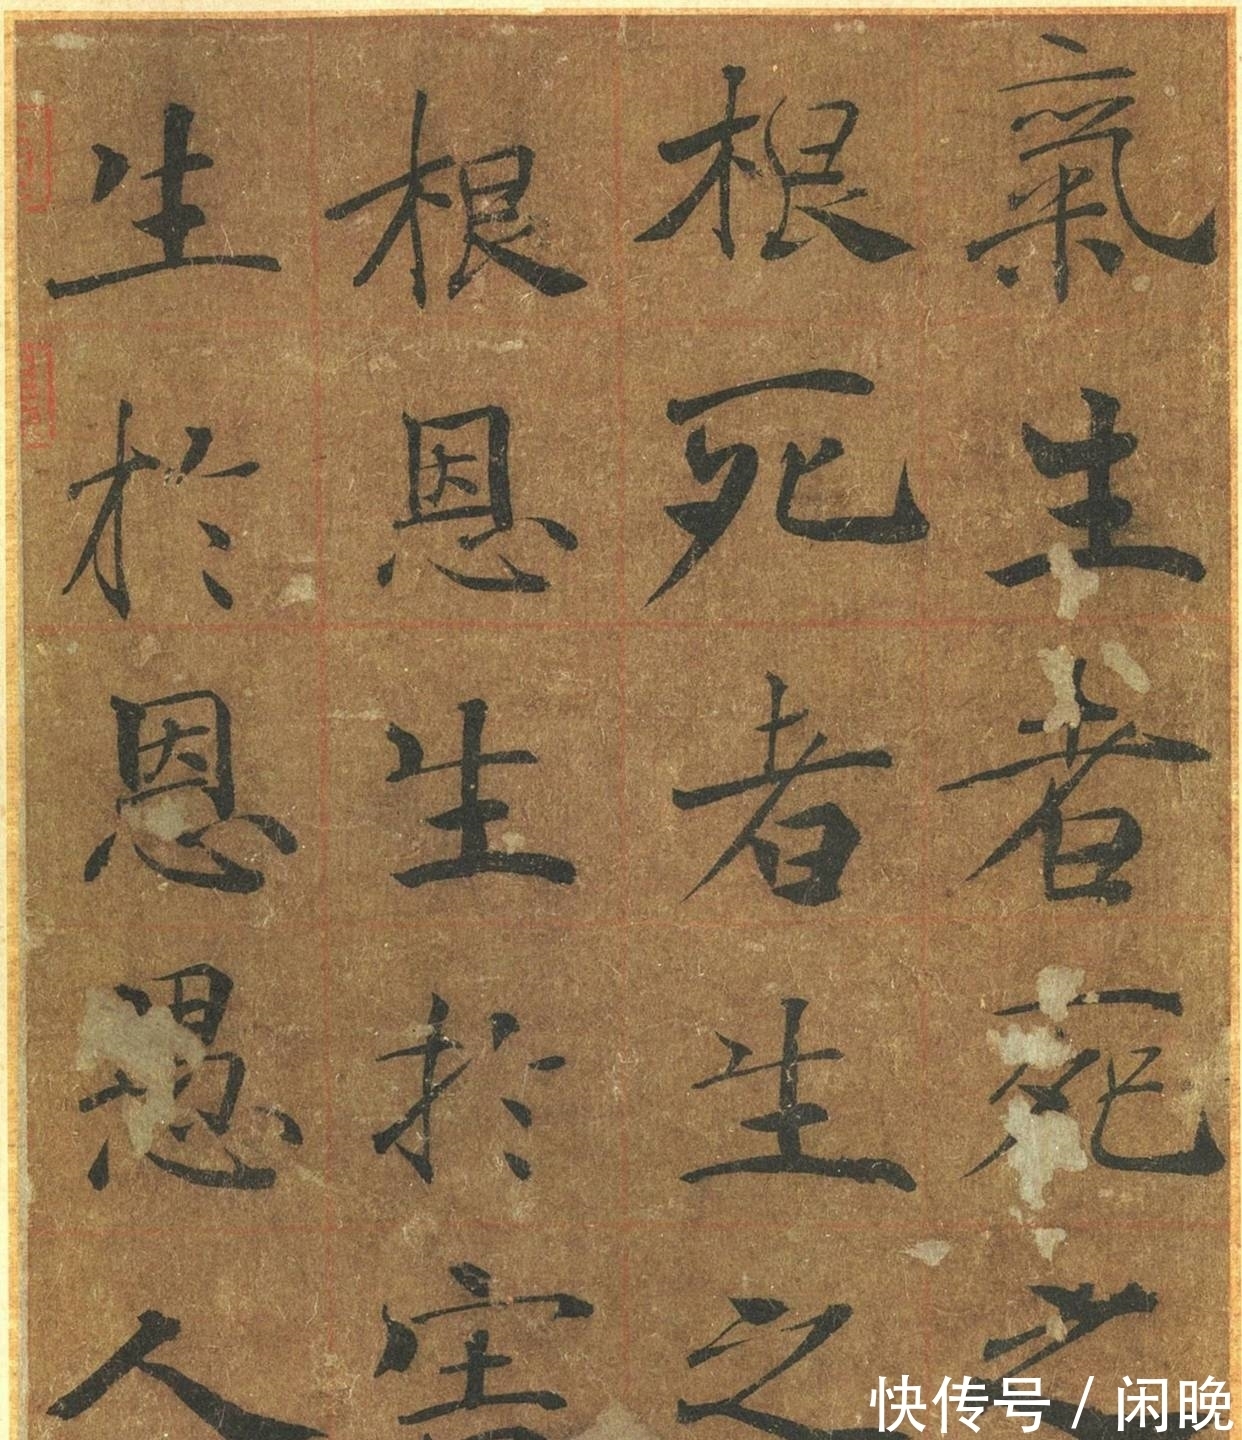 氣生者死之
根死者生之
根恩生於害
生於恩愚人
快传号 / 闲晚